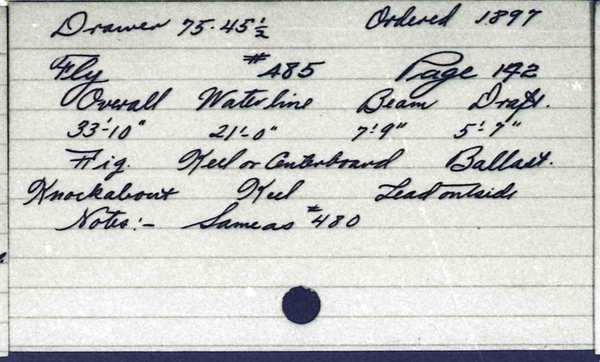 Drawer 75-45½ Ordered 1897
Fly #485 Page 142
Overall Waterline Beam Draft.
33'-10" 21'-0" 7'-9" 5'-7"
Fig. Keel or Centerboard Ballast.
Knockabout Keel Lead outside
Notes:- Same as #480